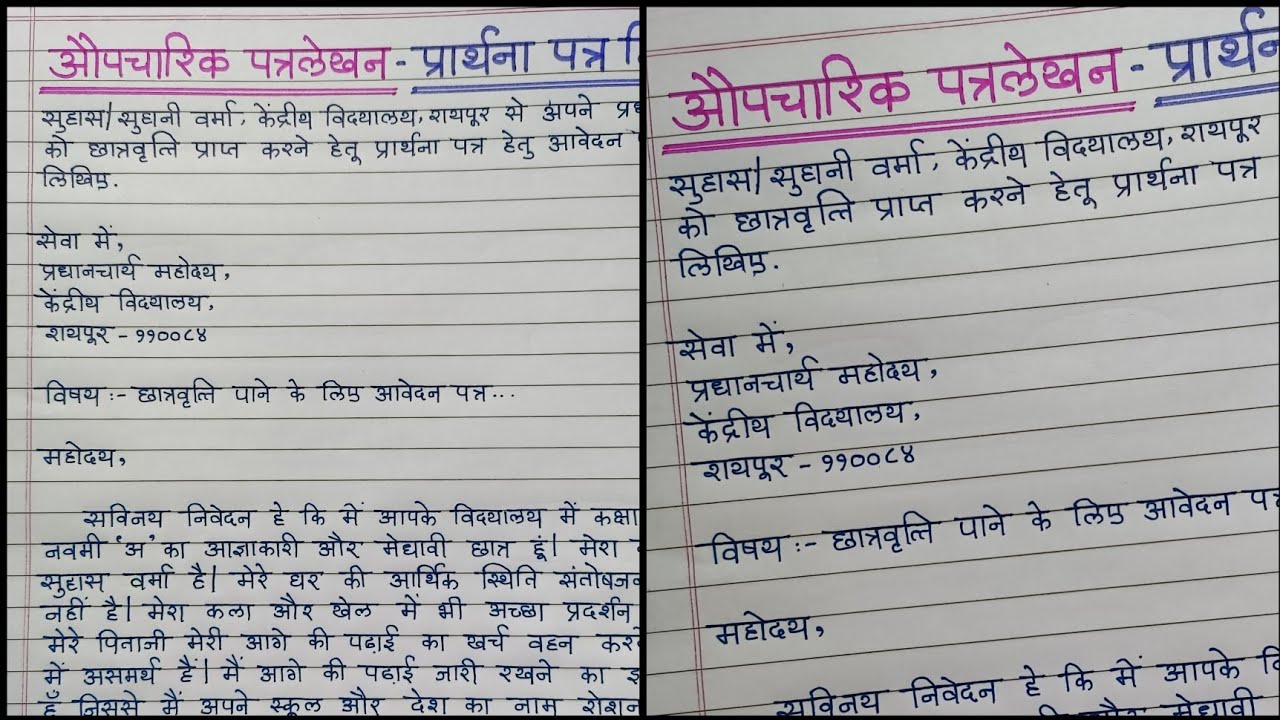 औपचारिक पत्रलेखन - प्रार्थना पत्र
सुहास/सुहानी वर्मा, केंद्रीय विदयालय, रायपूर से अपने
को छात्रवृत्ति प्राप्त करने हेतू प्रार्थना पत्र हेतु आवेदन
लिखिए.
सेवा में,
प्रधानचार्य महोदय,
केंद्रीय विदयालय,
रायपूर - ११००८४
विषय :- छात्रवृत्ति पाने के लिए आवेदन पत्र...
महोदय,
सविनय निवेदन हे कि में आपके विदयालय में कक्षा
नवमी 'अ' का आज्ञाकारी और मेधावी छात्र हूं। मेरा
सुहास वर्मा है। मेरे घर की आर्थिक स्थिति
नहीं है। मेरा कला और खेल में भी अच्छा प्रदर्शन
मेरे पिताजी मेरी आगे की पढाई का खर्च वहन
में असमर्थ हैं। मैं आगे की पढाई जारी रखने का
हूँ जिससे मैं अपने स्कूल और देश का नाम रोशन
औपचारिक पत्रलेखन -
सुहास/सुहानी वर्मा, केंद्रीय विदयालय, रायपूर
को छात्रवृत्ति प्राप्त करने हेतू प्रार्थना पत्र
लिखिए.
सेवा में,
प्रधानचार्य महोदय,
केंद्रीय विदयालय,
रायपूर - ११००८४
विषय :- छात्रवृत्ति पाने के लिए आवेदन
महोदय,
सविनय निवेदन हे कि में आपके